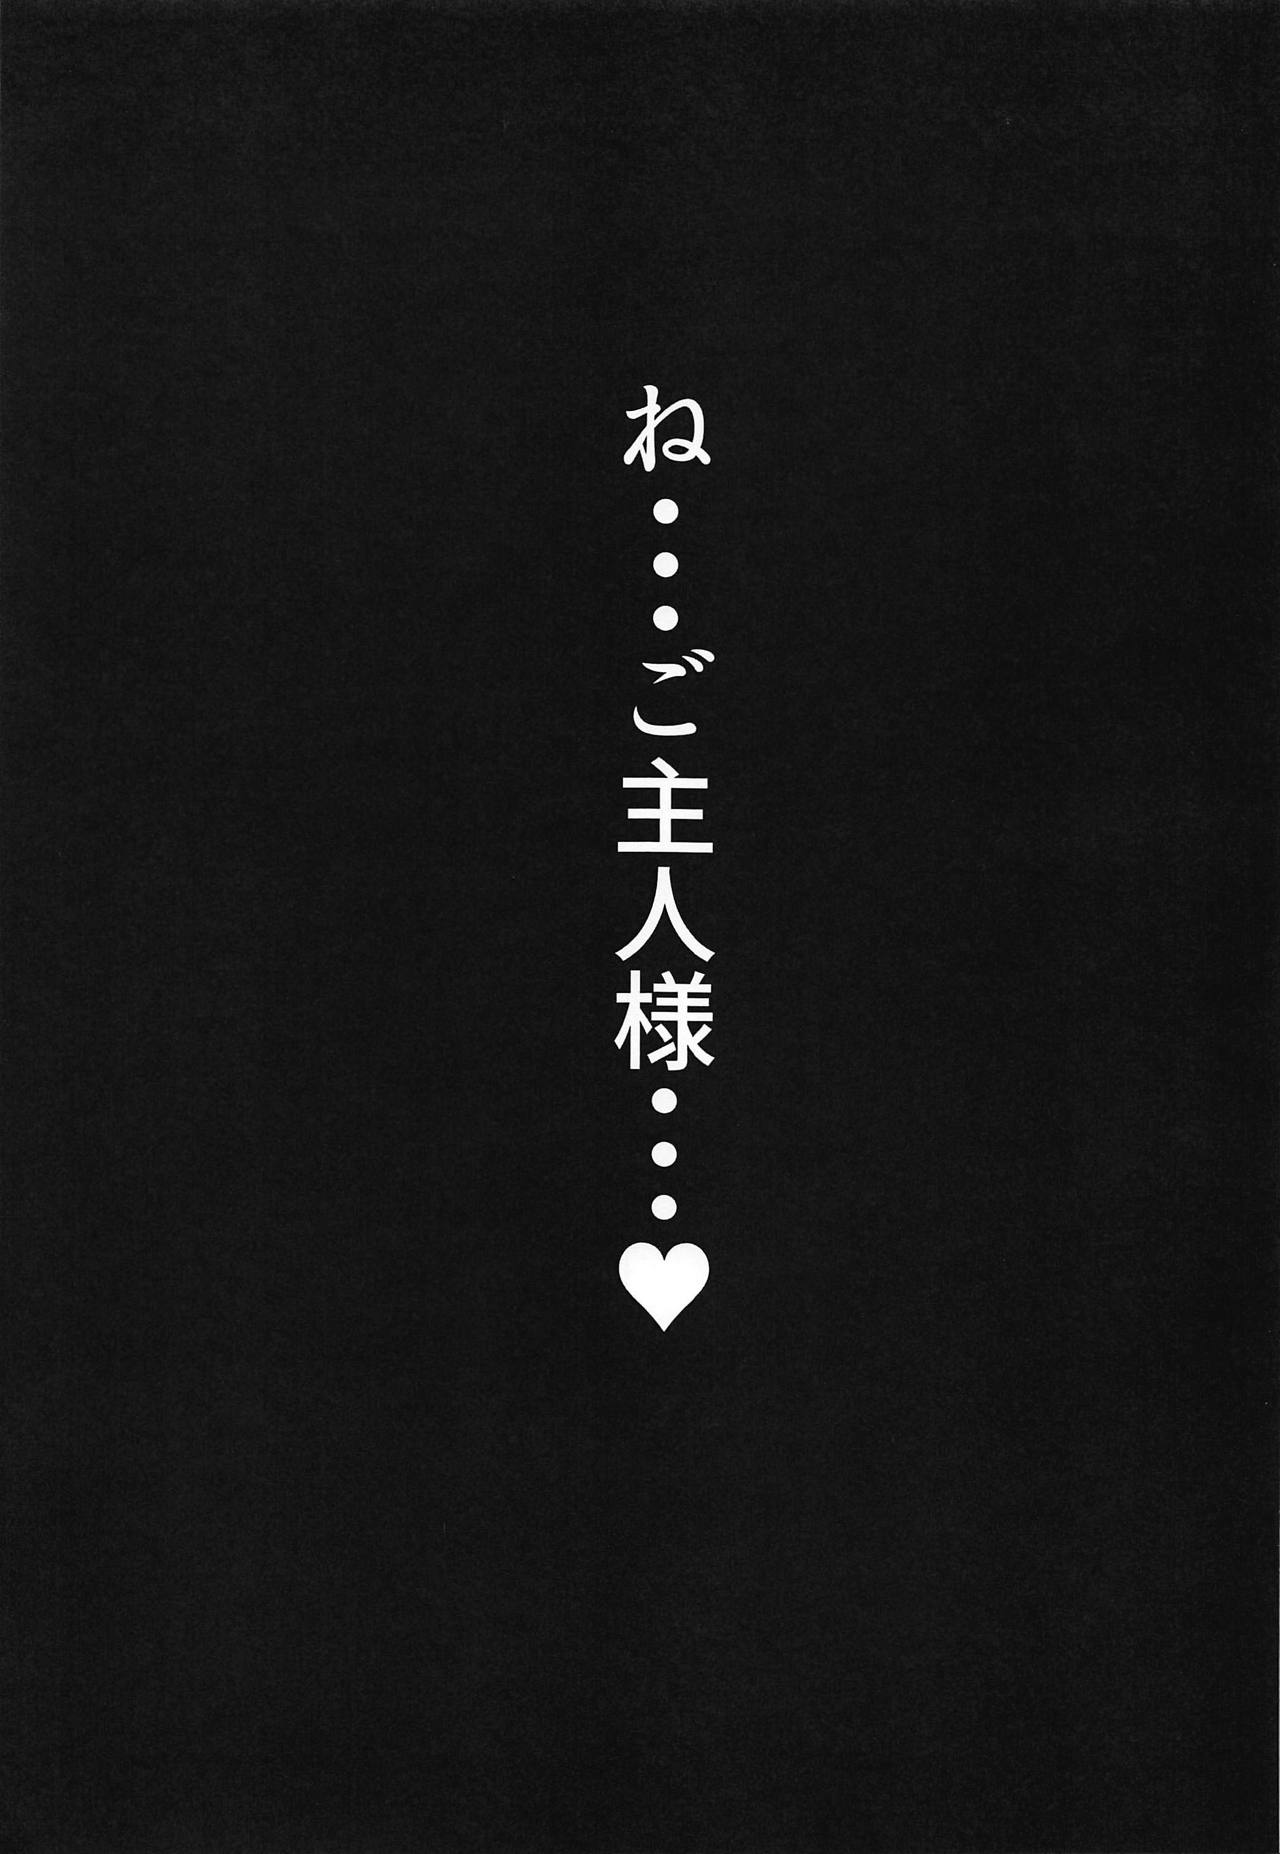 ね…ご主人様…♥